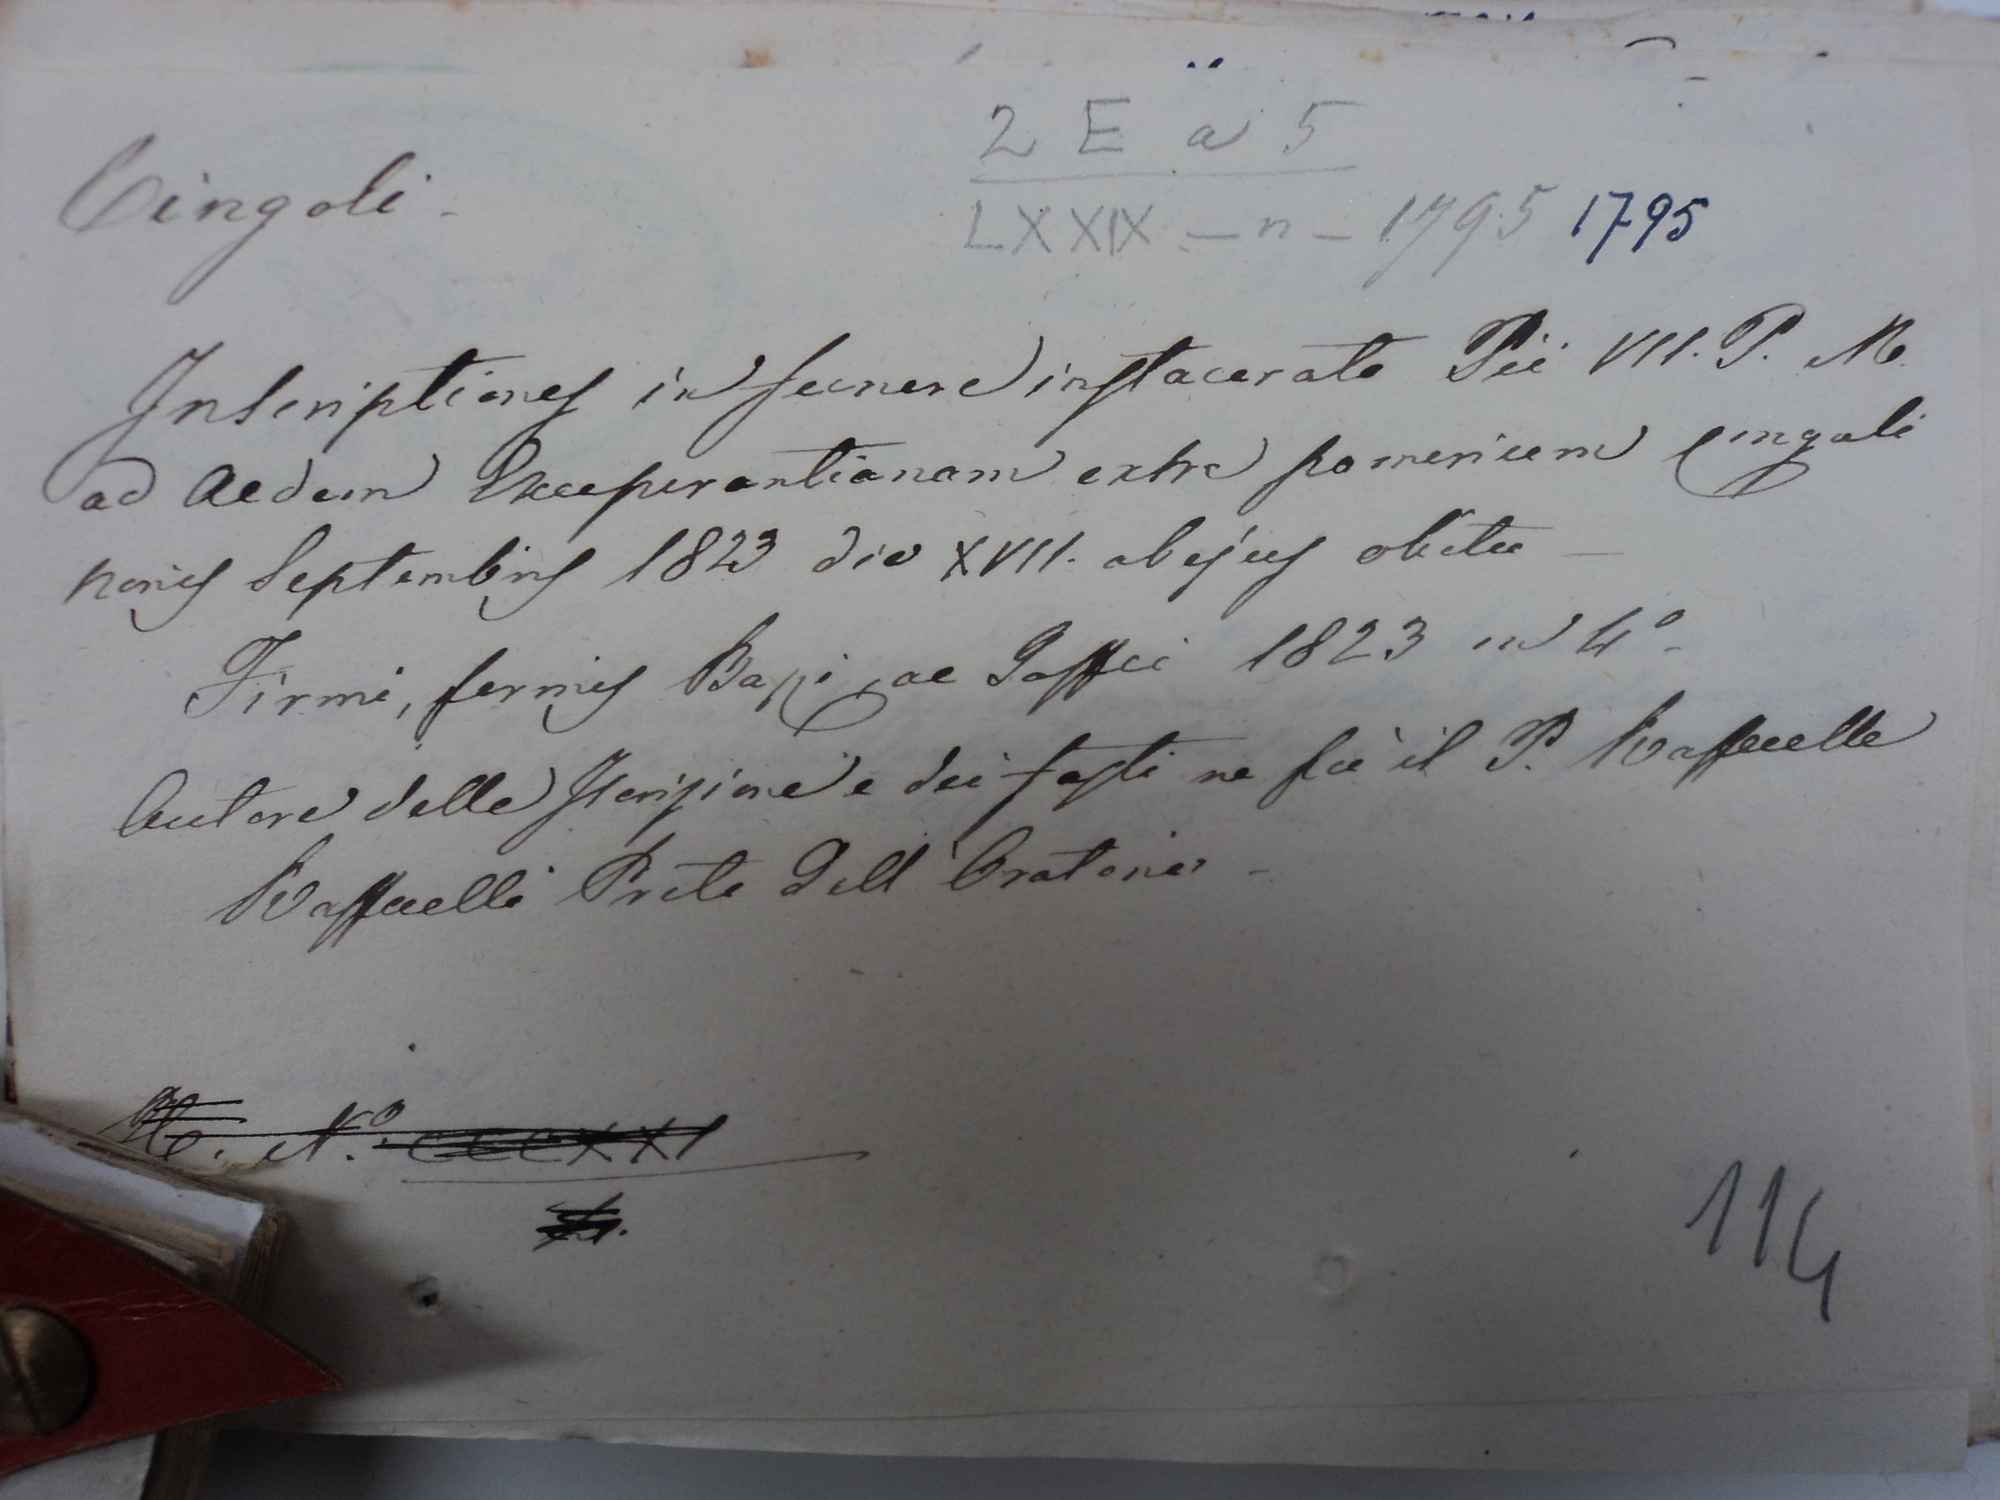 Cingoli -
2 E a 5
LXXIX - n - 1795 1795
Inscriptiones in funere instaurato Pii VII. P. M.
ad Aedem Exuperantianam extra pomerium Cinguli
nonis Septembris 1823 die XVII. ab ejus obitu -
Firmi, formis Bazzi, ac Paffei 1823 in 4º -
Autore delle Iscrizione e dei fasti ne fù il P. Raffaelle
Raffaelli Prete dell'Oratorio -
M. Nº. CCCXXI
114